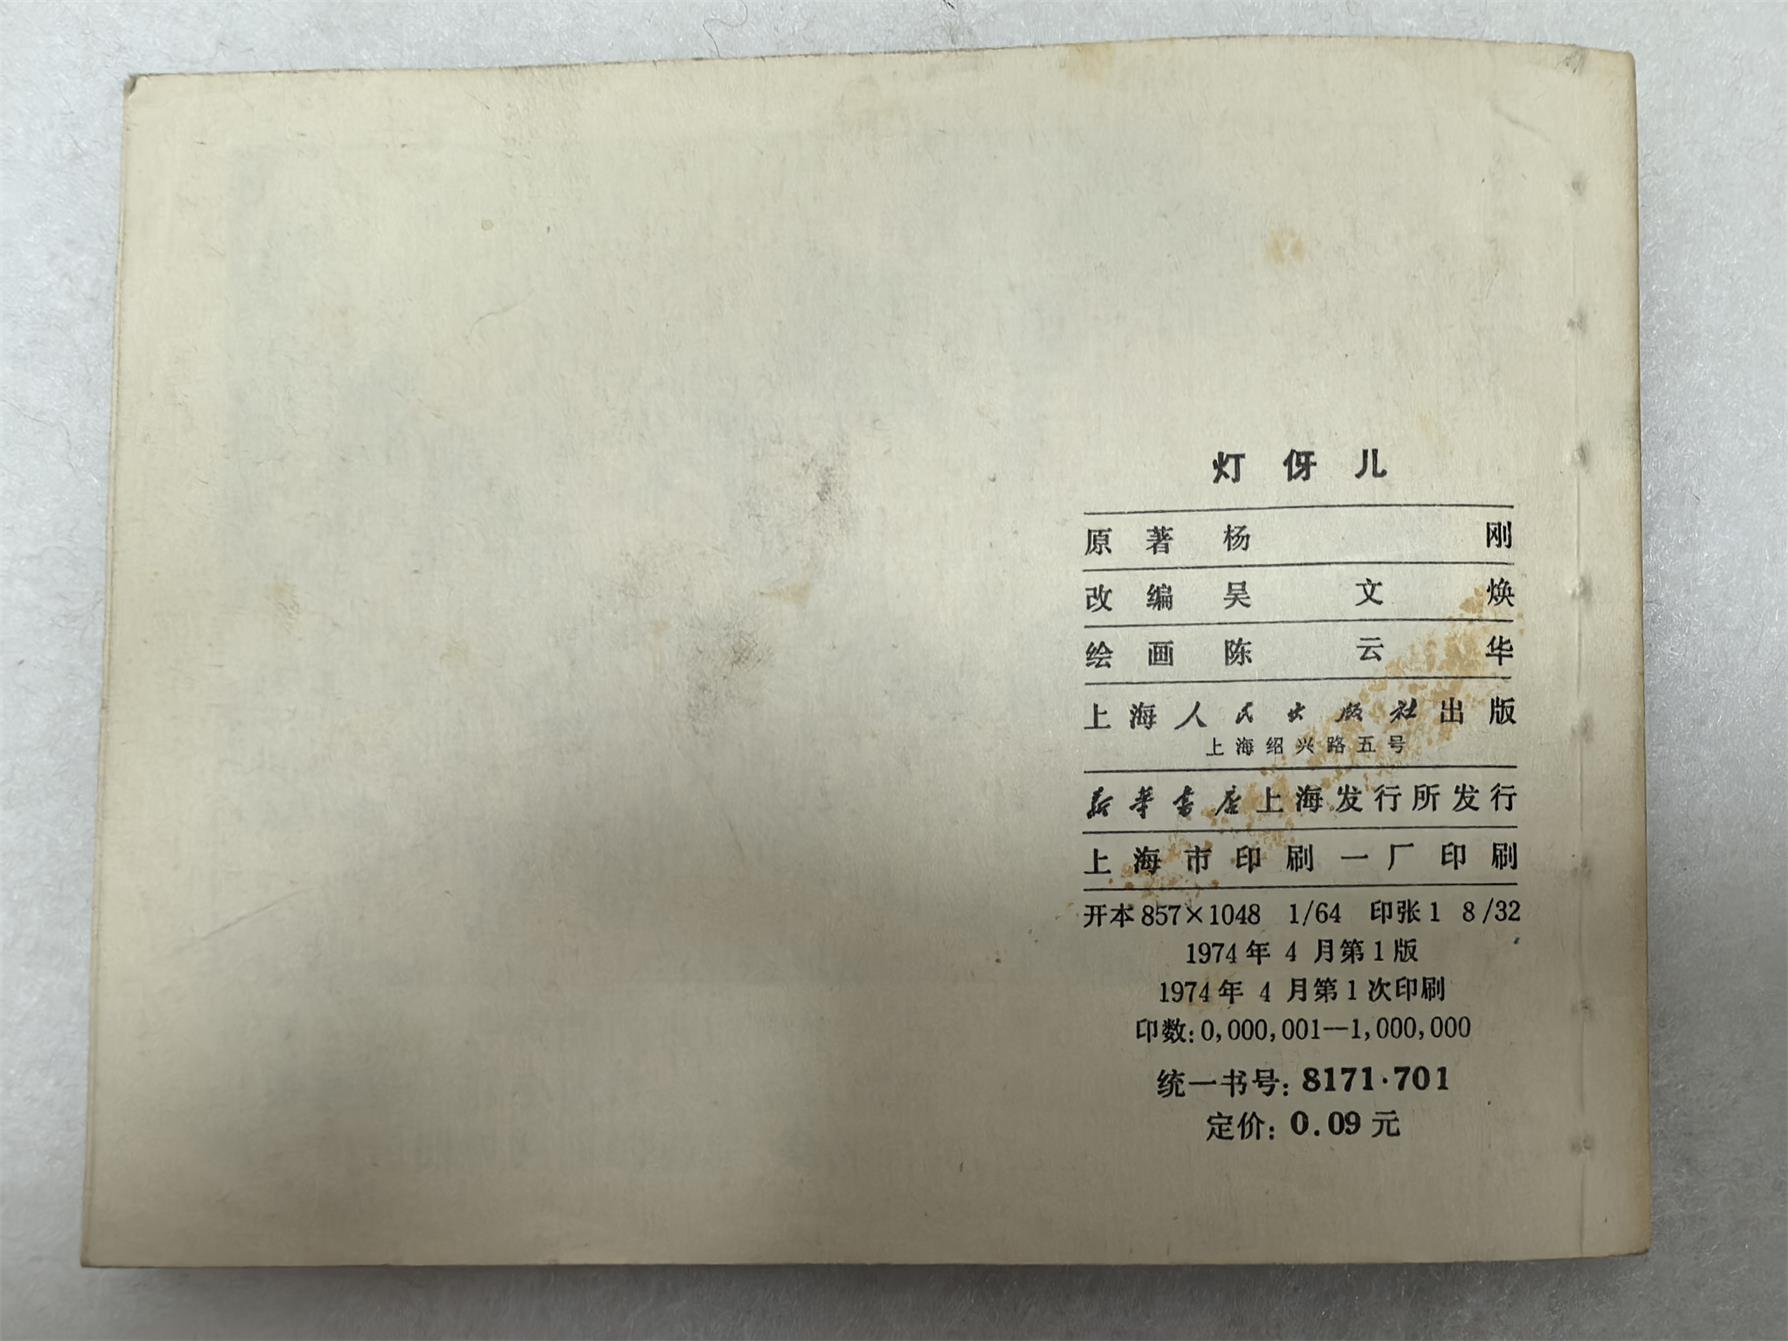 灯伢儿
原著 杨刚
改编 吴文焕
绘画 陈云华
上海人民出版社出版
上海绍兴路五号
新华书店上海发行所发行
上海市印刷一厂印刷
开本 857×1048 1/64 印张 1 8/32
1974年4月第1版
1974年4月第1次印刷
印数:0,000,001—1,000,000
统一书号:8171·701
定价:0.09元